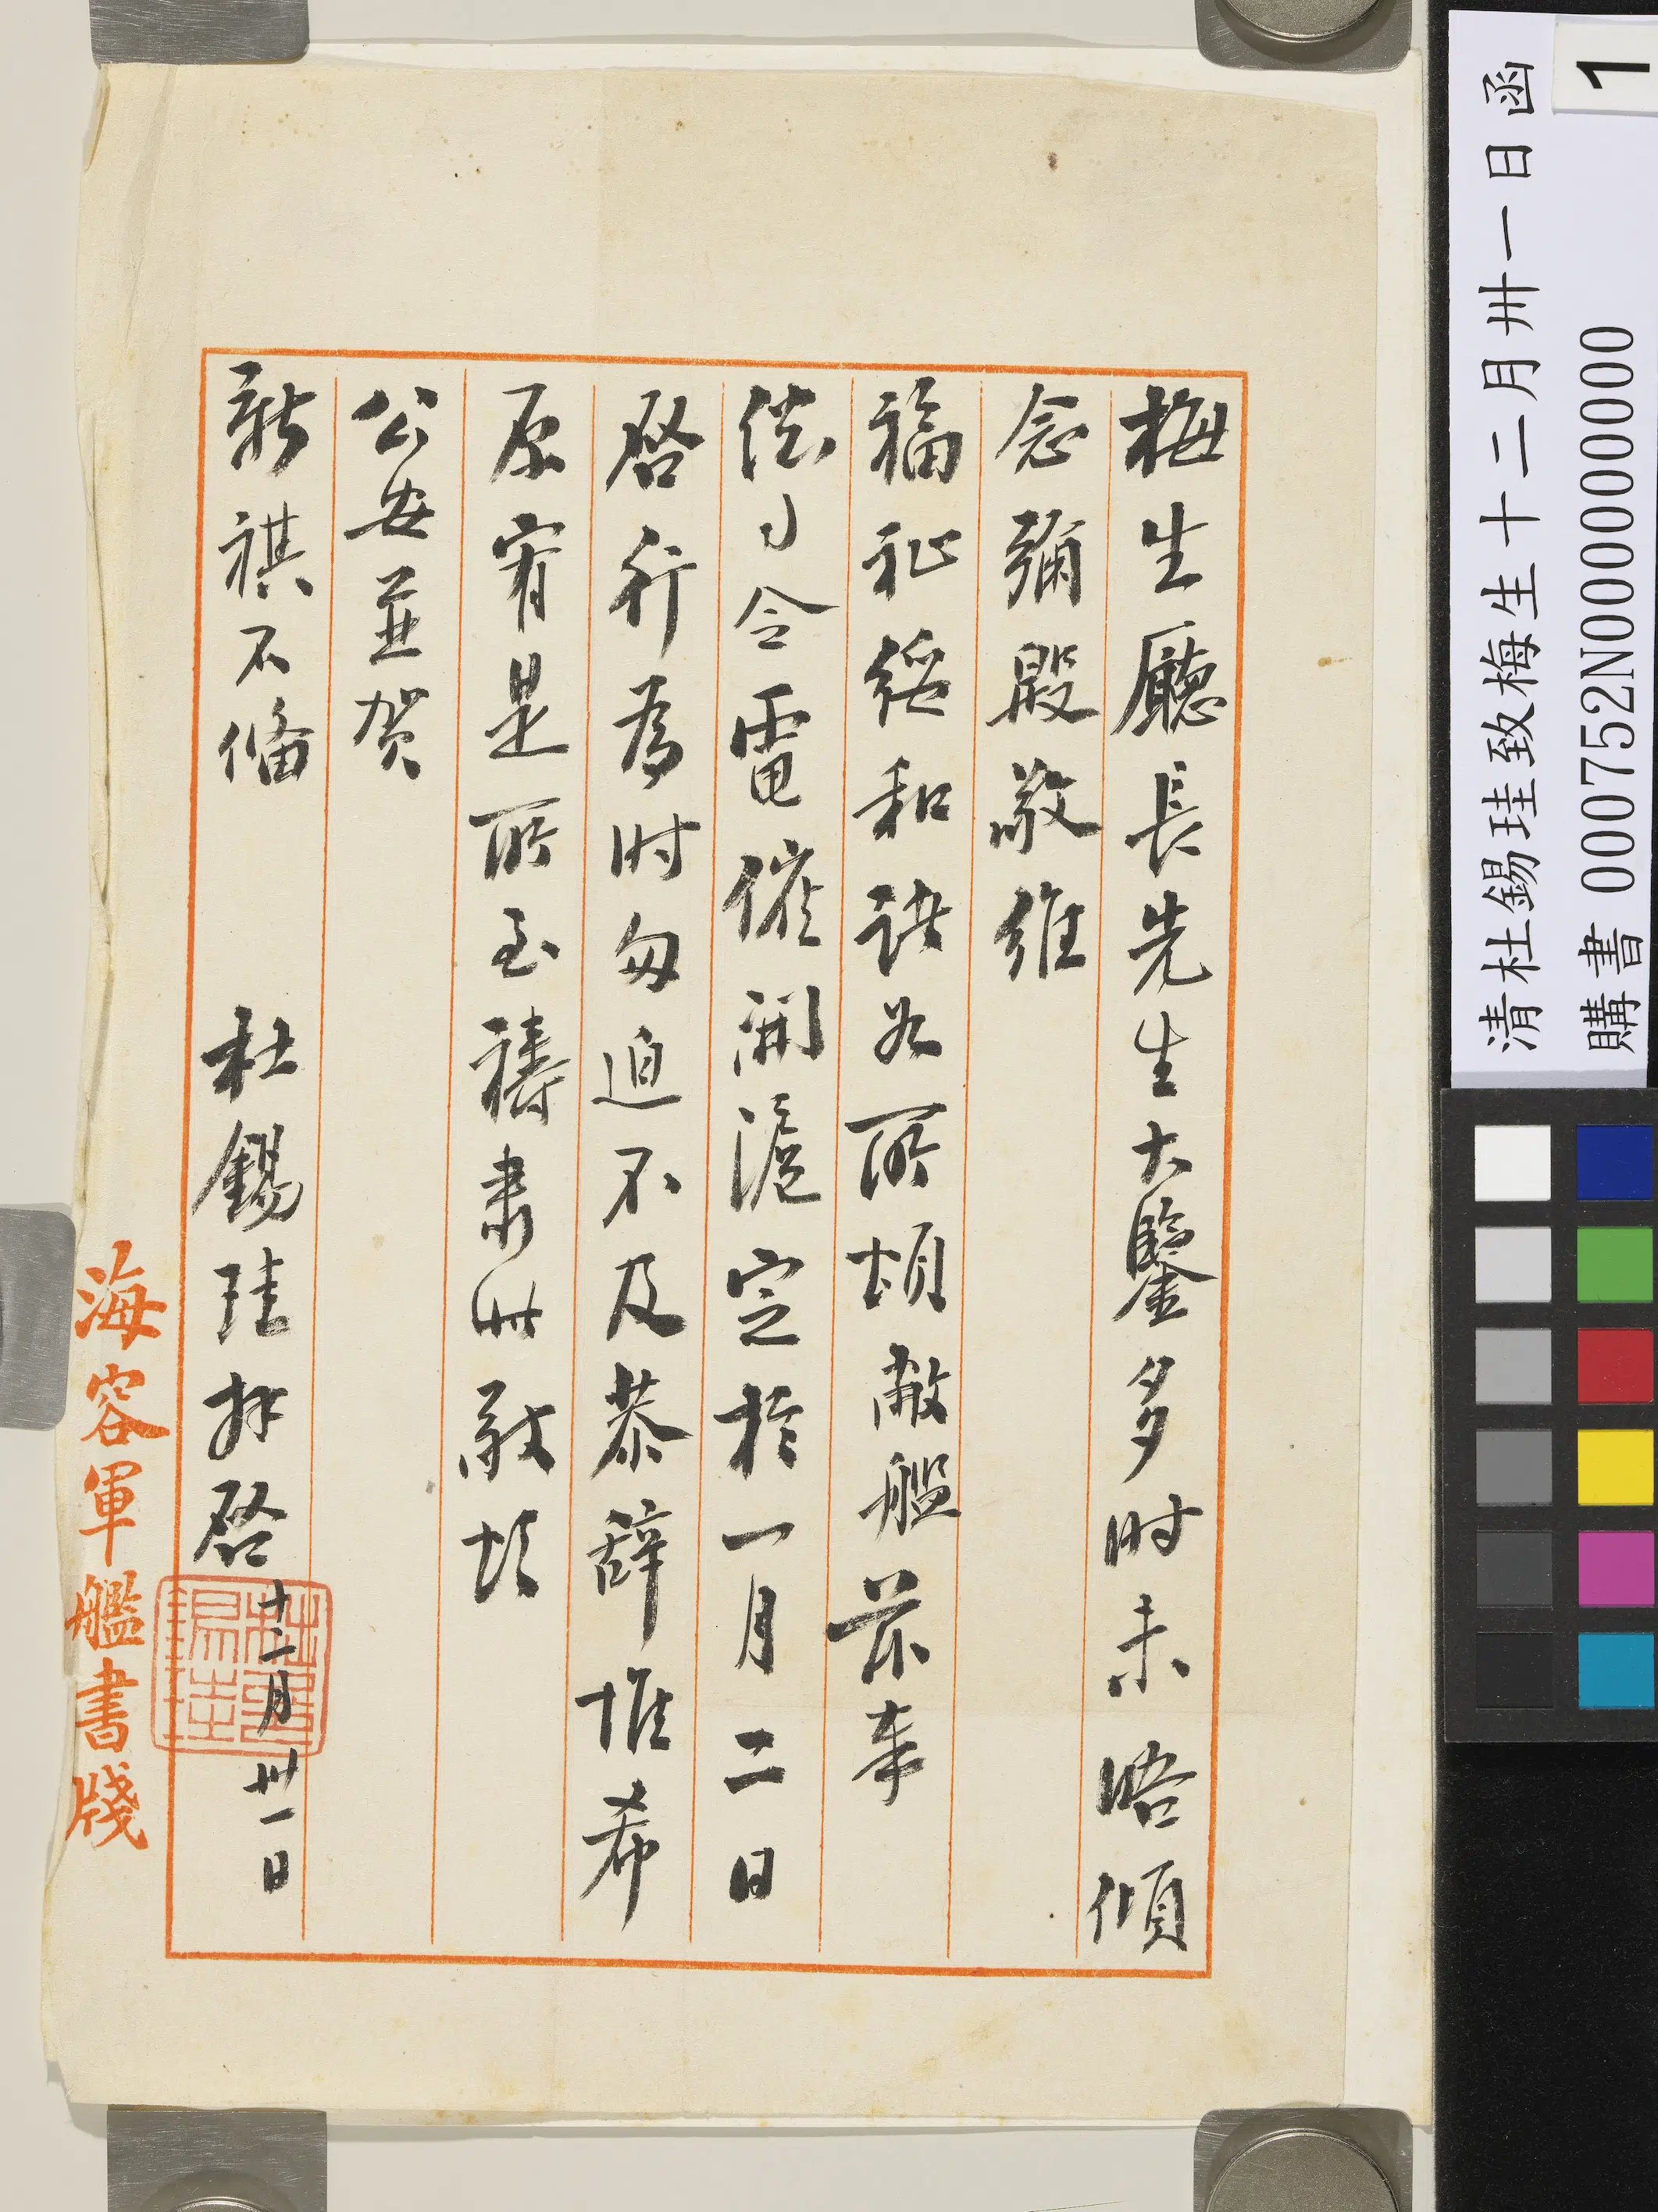 梅生廳長先生大鑒多时未晤傾
念彌殷敬維
福祉綏和諸如所頌敝艦前奉
司令電催開滬定於一月二日
啓行為时匆迫不及恭辞惟希
原宥是所至禱肃此敬頌
公安並贺
新祺不俻
杜錫珪拜啓
十二月卅一日
杜錫珪
海容軍艦書牋
清杜錫珪致梅生十二月卅一日函
購書 000752N000000000
1